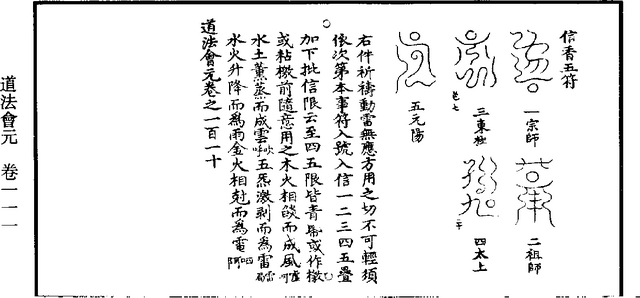 信香五符
一宗師
二祖師
三東
四太上
五元陽
右件祈禱動雷無應方用之切不可輕須
依次第本事符入號入信一二三四五疊
加下批信限云至四五限皆青帋或作檄
或粘檄前隨意用之木火相燄而成風
水土薰蒸而成雲五炁激剝而為雷
水火升降而為雨金火相尅而為電
道法會元卷之一百一十
道法會元 卷一一一